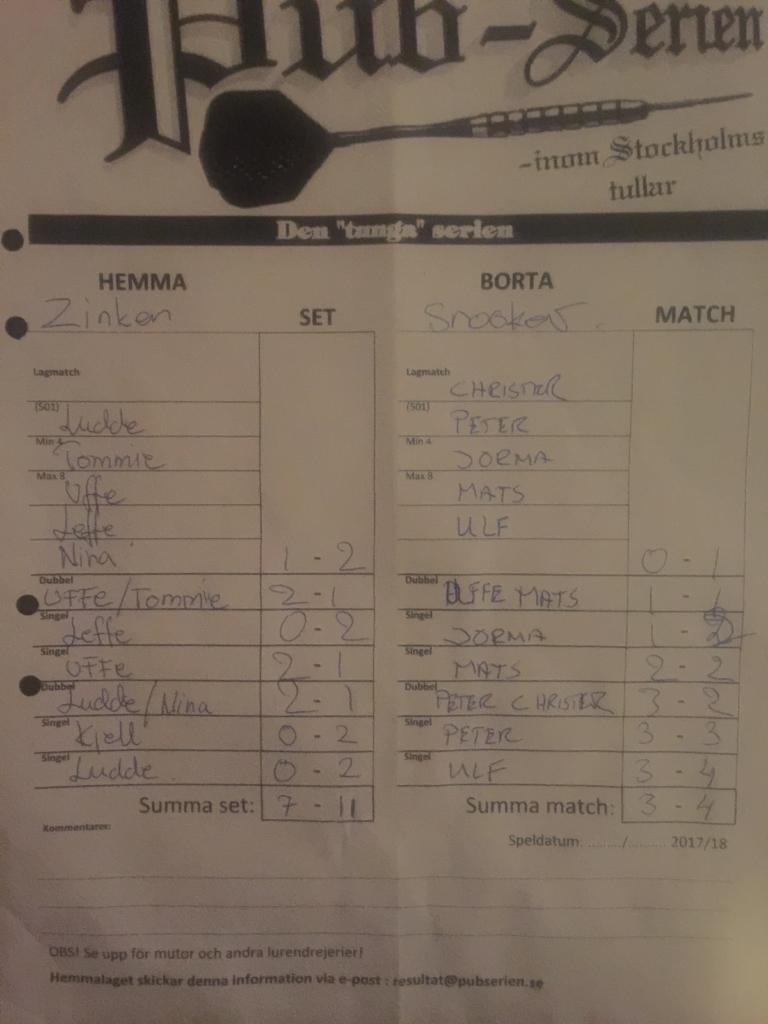 Pub-Serien
-inom Stockholms
tullar
Den "tunga" serien
HEMMA BORTA
Zinken SET Snooker MATCH
Lagmatch Lagmatch CHRISTER
(501) Ludde (501) PETER
Min 4 Tommie Min 4 JORMA
Max 8 Uffe Max 8 MATS
Leffe ULF
Nina 1 - 2 0 - 1
Dubbel UFFe/Tommie 2 - 1 Dubbel UFFE MATS 1 - 1
Singel Leffe 0 - 2 Singel JORMA 1 - 2
Singel UFFe 2 - 1 Singel MATS 2 - 2
Dubbel Ludde/Nina 2 - 1 Dubbel PETER CHRISTER 3 - 2
Singel Kjell 0 - 2 Singel PETER 3 - 3
Singel Ludde 0 - 2 Singel ULF 3 - 4
Summa set: 7 - 11 Summa match: 3 - 4
Kommentarer: Speldatum: ........./.......... 2017/18
OBS! Se upp för mutor och andra lurendrejerier!
Hemmalaget skickar denna information via e-post : resultat@pubserien.se